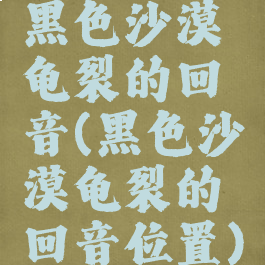 黑色沙漠
龟裂的回
音(黑色沙
漠龟裂的
回音位置)